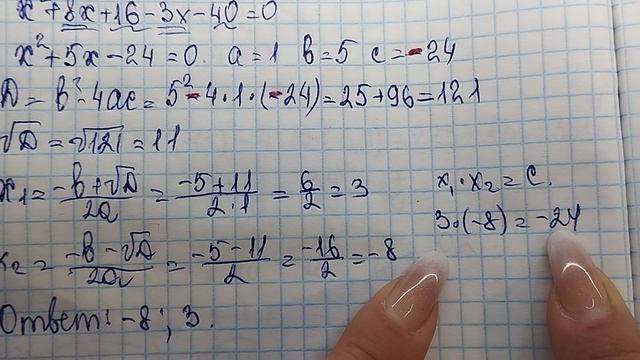 x² + 8x + 16 - 3x - 40 = 0
x² + 5x - 24 = 0. a = 1 b = 5 c = -24
D = b² - 4ac = 5² - 4 · 1 · (-24) = 25 + 96 = 121
√D = √121 = 11
x₁ = (-b + √D)/2a = (-5 + 11)/(2 · 1) = 6/2 = 3
x₁ · x₂ = c.
3 · (-8) = -24
x₂ = (-b - √D)/2a = (-5 - 11)/2 = -16/2 = -8
Ответ: -8; 3.